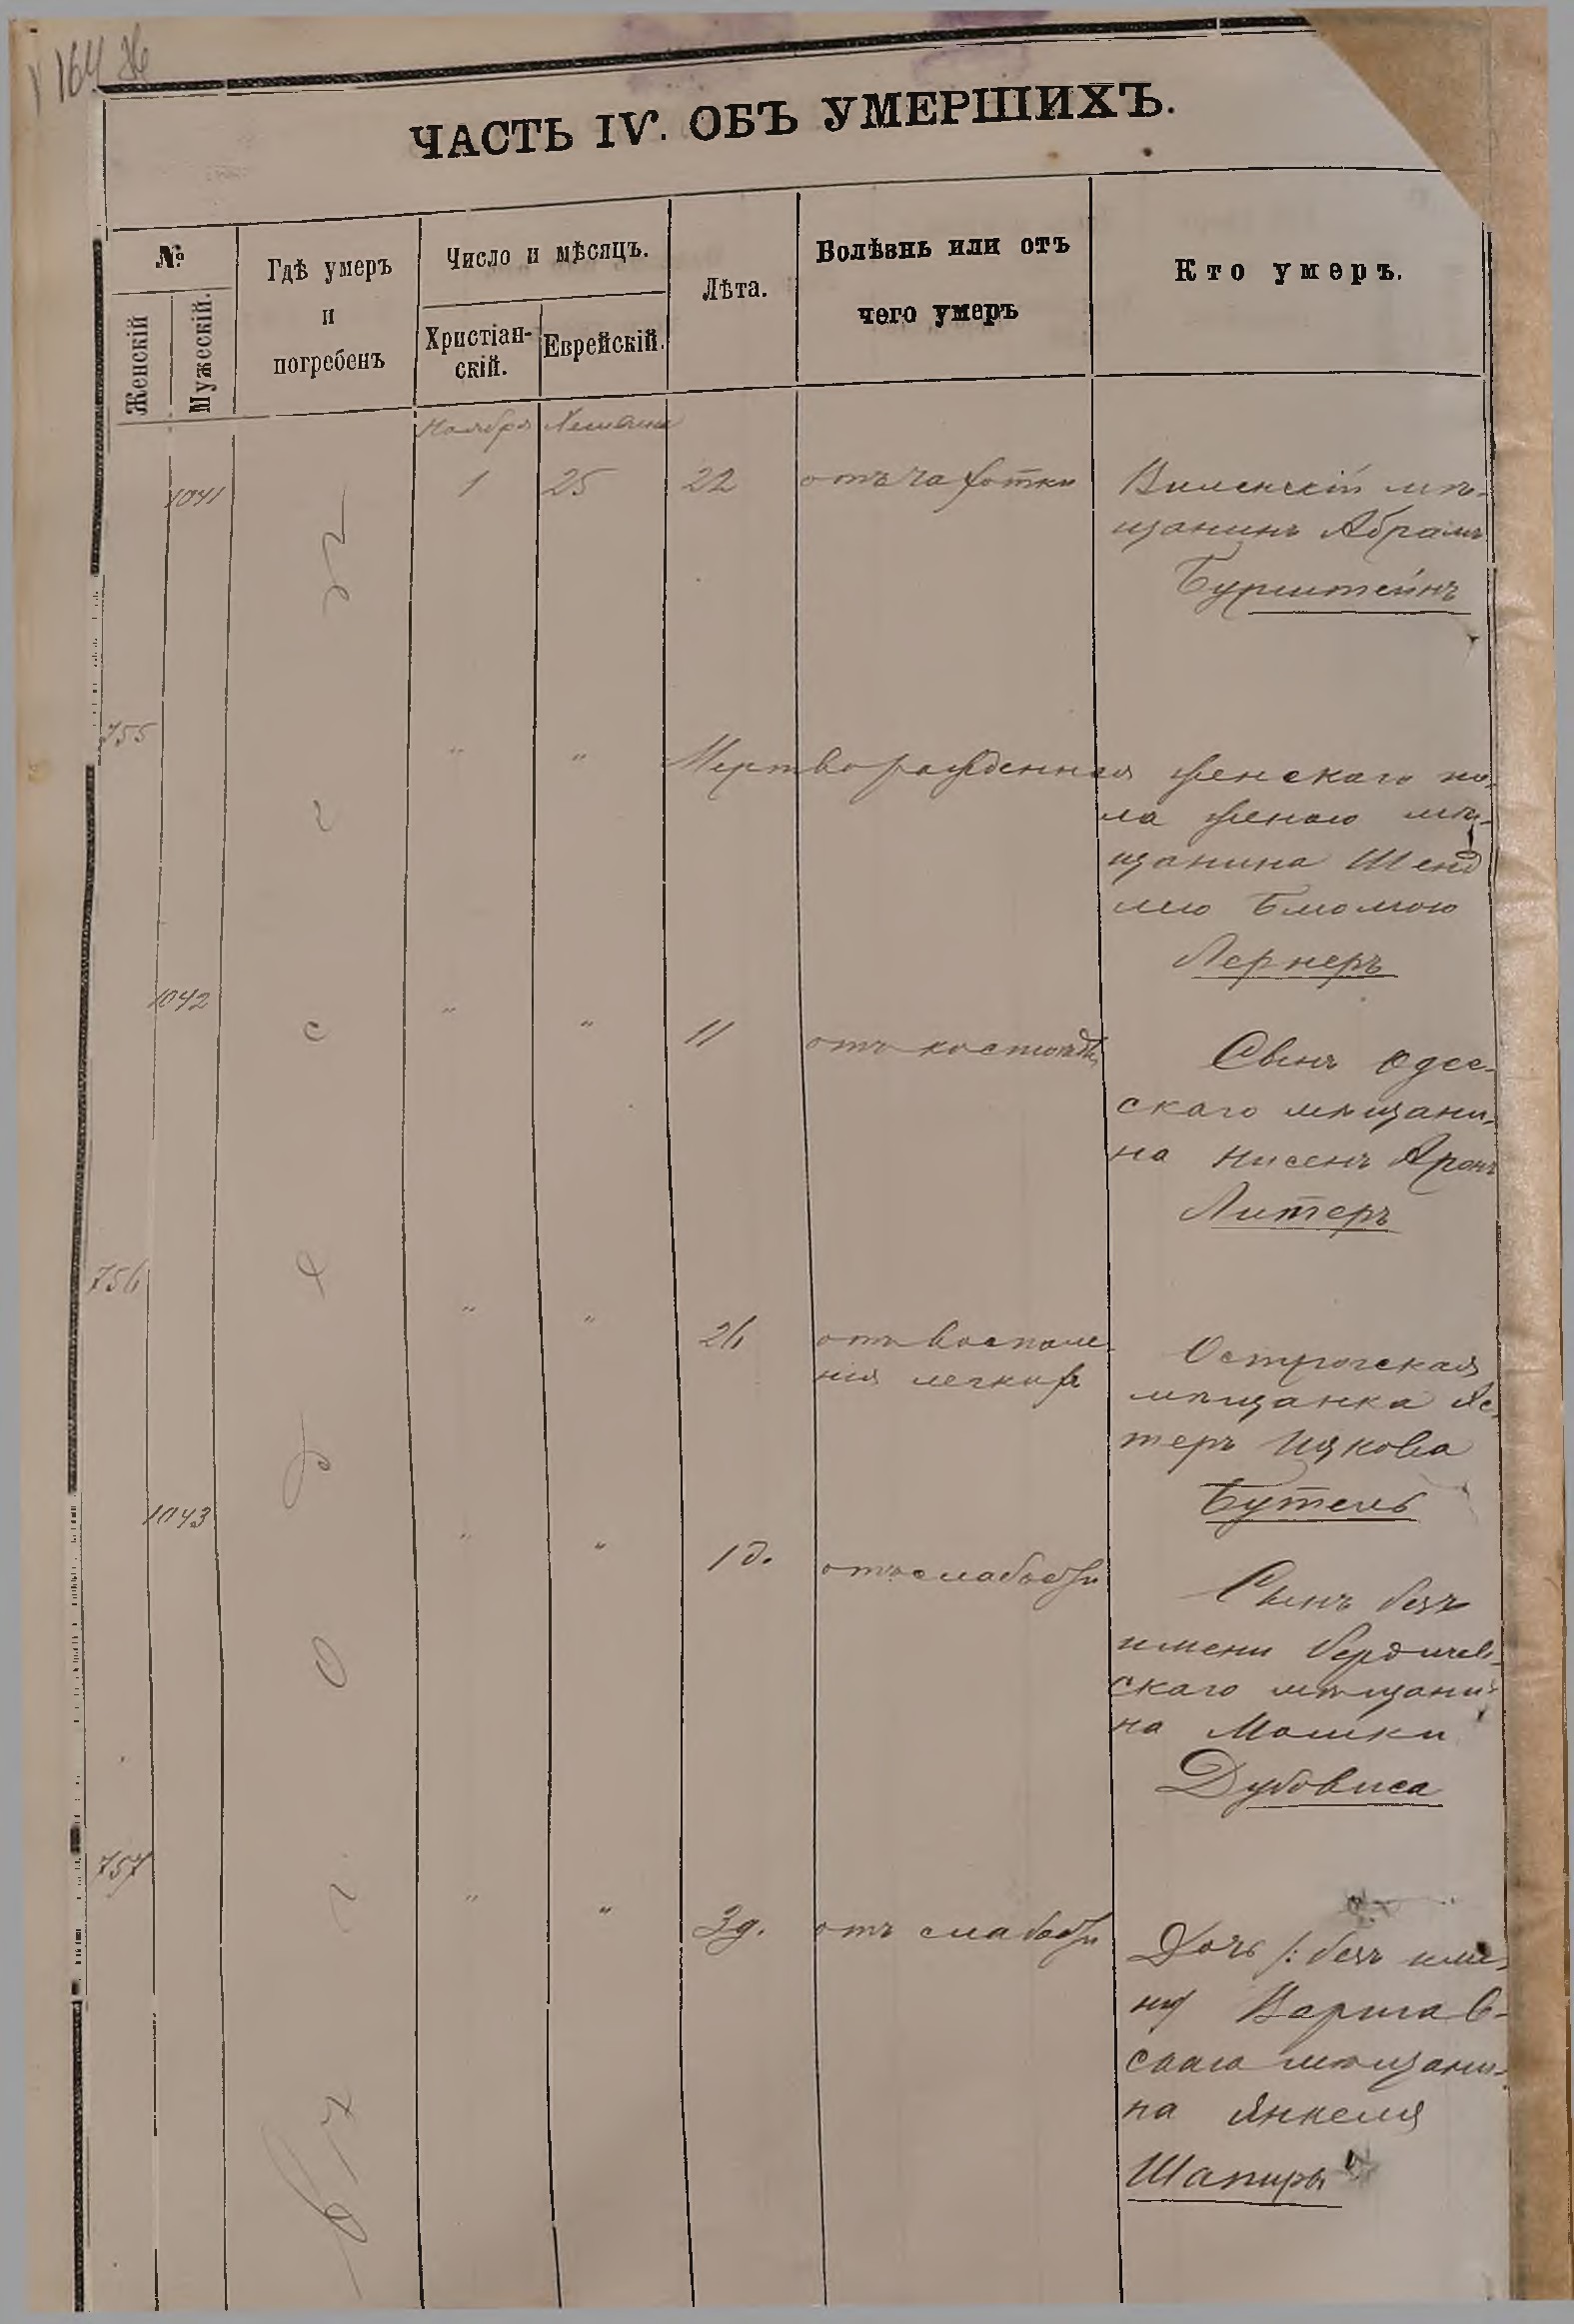 164
ЧАСТЬ IV. ОБЪ УМЕРШИХЪ.
№
Женскій
Мужескій.
Гдѣ умеръ
и
погребенъ
Число и мѣсяцъ.
Христіан-
скій.
Еврейскій.
Лѣта.
Болѣзнь или отъ
чего умеръ
Кто умеръ.
Ноября Хешвана
1041 1 25 22 отъ чахотки Виленскій мѣ-
щанинъ Абрамъ
Бурштейнъ
755 " " Мертворожденная женскаго по-
ла женою мѣ-
щанина Шенд
лею Блюмою
Лернеръ
1042 " " 11 отъ костоѣды Сынъ одес-
скаго мѣщани-
на Нисенъ Аронъ
Литеръ
756 " " 26 отъ воспале-
нія легкихъ
Острогская
мѣщанка Эс-
теръ Ицкова
Бутель
1043 " " 1 д. отъ слабости Сынъ безъ
имени бердичев-
скаго мѣщани-
на Мошки
Дубовиса
757 " " 3 д. отъ слабости Дочь /: безъ име-
ни/ Варшав-
скаго мѣщани-
на Янкеля
Шапиры
въ г. Одессѣ